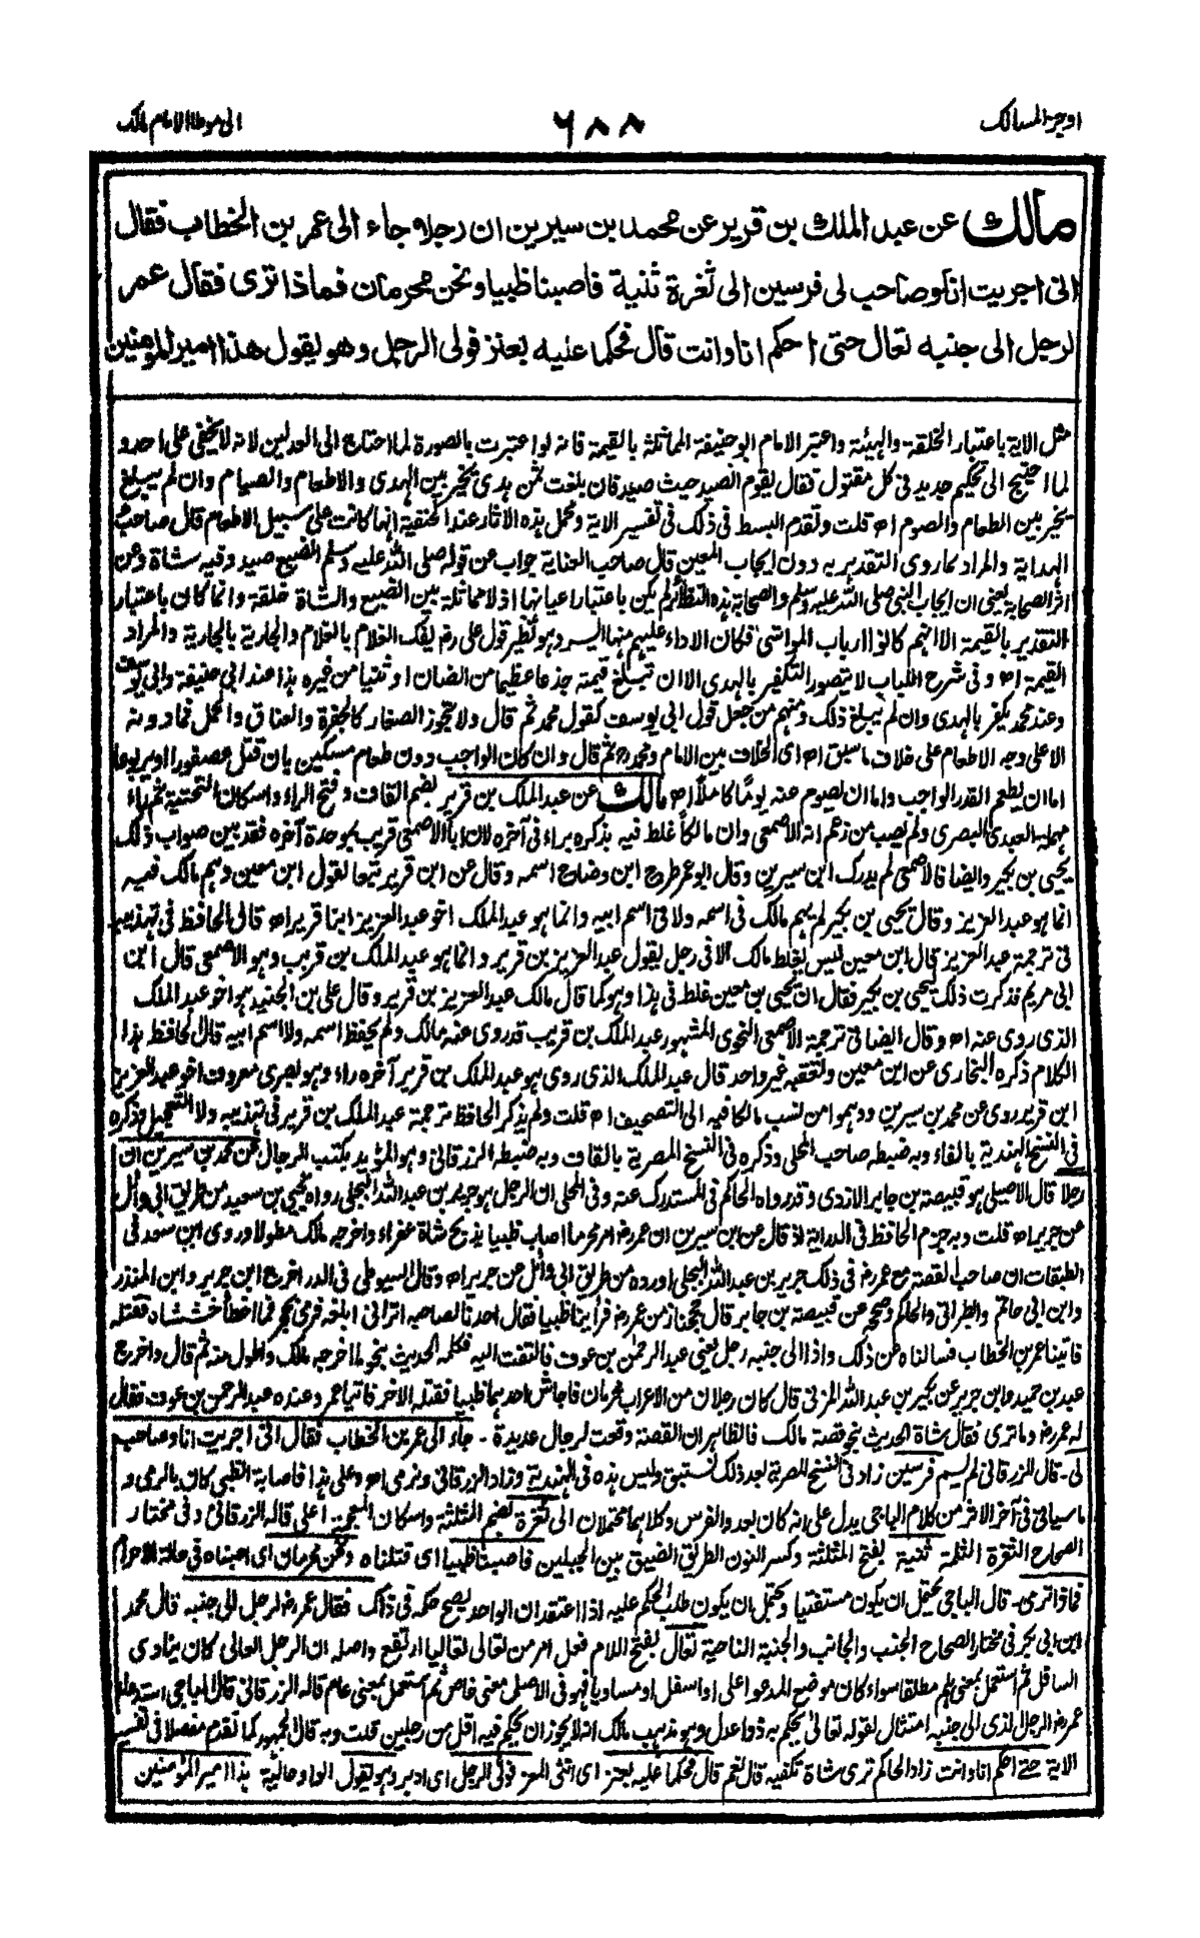 اوجز المسالك
٦٨٨
الى موطا الامام مالك
مالك عن عبد الملك بن قرير عن محمد بن سيرين ان رجلا جاء الى عمر بن الخطاب فقال
انى اجريت انا وصاحب لى فرسين الى ثغرة ثنية فاصبنا ظبيا ونحن محرمان فماذا ترى فقال عمر
لرجل الى جنبه تعال حتى احكم انا وانت قال فحكما عليه بعنز فولى الرجل وهو يقول هذا امير المؤمنين
مثل الاية باعتبار الخلقة والهيئة واعتبر الامام ابو حنيفة المماثلة بالقيمة فانه لو اعتبرت بالصورة لما احتاج الى العدلين لانه لا يخفى على احد و
لما احتيج الى تحكيم جديد فى كل مقتول فقال يقوم الصيد حيث صيد فان بلغت ثمن هدى تخير بين الهدى والاطعام والصيام وان لم يبلغ
يخير بين الطعام والصوم اه قلت وتقدم البسط فى ذلك فى تفسير الاية ومحمل هذه الاثار عند الحنفية انها كانت على سبيل الاطعام قال صاحب
الهداية والمراد كما روى التقدير به دون ايجاب المعين قال صاحب العناية جواب عن قوله صلى الله عليه وسلم الضبع صيد وفيه شاة وعن
اثر الصحابة يعنى ان ايجاب النبى صلى الله عليه وسلم والصحابة هذه النظائر لم يكن باعتبار اعيانها اذ لا مماثلة بين الضبع والشاة خلقة وانما كان باعتبار
التقدير بالقيمة الا انهم كانوا ارباب المواشى فكان الاداء عليهم منها ايسر وهو نظير قول على رض يفك الغلام بالغلام والجارية بالجارية والمراد
القيمة اه وفى شرح اللباب لا يتصور التكفير بالهدى الا ان تبلغ قيمته جذعا عظيما من الضان او ثنيا من غيره هذا عند ابى حنيفة وابى يوسف
وعند محمد يكفر بالهدى وان لم يبلغ ذلك ومنهم من جعل قول ابى يوسف كقول محمد ثم قال ولا يجوز الصغار كالجفرة والعناق والحمل فما دونه
الا على وجه الاطعام على خلاف ما سبق اه اى الخلاف بين الامام ومحمد ثم قال وان كان الواجب دون طعام مسكين بان قتل عصفورا او يربوعا
اما ان يطعم القدر الواجب واما ان يصوم عنه يوما كاملا اه مالك عن عبد الملك بن قرير بضم القاف وفتح الراء واسكان التحتية ثم راء
مهملة العبدى البصرى ولم يصب من زعم انه الاصمعى وان مالكا غلط فيه بذكره براء فى آخره لان ابا الاصمعى قريب بموحدة آخره فقد بين صواب ذلك
يحيى بن بكير وايضا فالاصمعى لم يدرك ابن سيرين وقال ابو عمر طرح ابن وضاح اسمه وقال عن ابن قرير تبعا لقول ابن معين وهم مالك فيه
انما هو عبد العزيز وقال يحيى بن بكير لم يهم مالك فى اسمه ولا فى اسم ابيه وانما هو عبد الملك اخو عبد العزيز ابنا قرير اه قال الحافظ فى تهذيبه
فى ترجمة عبد العزيز قال ابن معين ليس يغلط مالك الا فى رجل يقول عبد العزيز بن قرير وانما هو عبد الملك بن قريب وهو الاصمعى قال ابن
ابى مريم فذكرت ذلك ليحيى بن بكير فقال ان يحيى بن معين غلط فى هذا وهو كما قال مالك عبد العزيز بن قرير وقال على بن الجنيد هو اخو عبد الملك
الذى روى عنه اه وقال ايضا فى ترجمة الاصمعى النحوى المشهور عبد الملك بن قريب قد روى عنه مالك ولم يحفظ اسمه ولا اسم ابيه قال الحافظ هذا
الكلام ذكره البخارى عن ابن معين وتعقبه غير واحد قال عبد الملك الذى روى هو عبد الملك بن قرير آخره راء وهو بصرى معروف اخو عبد العزيز
ابن قرير روى عن محمد بن سيرين ووهموا من نسب مالكا فيه الى التصحيف اه قلت ولم يذكر الحافظ ترجمة عبد الملك بن قرير فى تهذيبه ولا التعجيل وذكره
فى النسخ الهندية بالفاء وبه ضبطه صاحب المحلى وذكره فى النسخ المصرية بالقاف وبه ضبطه الزرقانى وهو المؤيد بكتب الرجال عن محمد بن سيرين ان
رجلا قال الاصيلى هو قبيصة بن جابر الازدى وقد رواه الحاكم فى المستدرك عنه وفى المحلى ان الرجل هو جرير بن عبد الله البجلى رواه يحيى بن سعيد من طريق ابى وائل
عن جرير اه قلت وبه جزم الحافظ فى الدراية اذ قال عن ابن سيرين ان عمر رض امر محرما اصاب ظبيا بذبح شاة عفراء واخرجه مالك مطولا وروى ابن سعد فى
الطبقات ان صاحب القصة مع عمر رض فى ذلك جرير بن عبد الله البجلى اورده من طريق ابى وائل عن جرير اه وقال السيوطى فى الدر اخرج ابن جرير وابن المنذر
وابن ابى حاتم والطبرانى والحاكم وصححه عن قبيصة بن جابر قال حججنا زمن عمر رض فرأينا ظبيا فقال احدنا لصاحبه اترانى ابلغه فرمى بحجر فما اخطأ خششاه فقتله
فاتينا عمر بن الخطاب فسالناه عن ذلك واذا الى جنبه رجل يعنى عبد الرحمن بن عوف فالتفت اليه فكلمه الحديث بنحو ما اخرجه مالك واطول منه ثم قال واخرج
عبد بن حميد وابن جرير عن بكير بن عبد الله المزنى قال كان رجلان من الاعراب محرمان فاجاش احدهما ظبيا فقتله الاخر فاتيا عمر وعنده عبد الرحمن بن عوف فقال
له عمر رض وما ترى فقال شاة الحديث بنحو قصة مالك فالظاهر ان القصة وقعت لرجال عديدة - جاء الى عمر بن الخطاب فقال انى اجريت انا وصاحب
لى - قال الزرقانى لم يسم فرسين زاد فى النسخ المصرية بعد ذلك نستبق وليس هذه فى الهندية وزاد الزرقانى ونرمى اه وعلى هذا فاصابة الظبى كان بالرمى و
ما سياتى فى آخر الاثر من كلام الباجى يدل على انه كان بعدو الفرس وكلاهما محتملان الى ثغرة بضم المثلثة واسكان المعجمة اعلى قاله الزرقانى وفى مختار
الصحاح الثغرة الثلمة ثنية بفتح المثلثة وكسر النون الطريق الضيق بين الجبلين فاصبنا ظبيا اى قتلناه ونحن محرمان اى اصبناه فى حالة الاحرام
فماذا ترى - قال الباجى يحتمل ان يكون مستفتيا ويحتمل ان يكون طلب الحكم عليه اذا اعتقد ان الواحد يصح حكمه فى ذلك فقال عمر رض لرجل الى جنبه قال محمد
ابن ابى بكر فى مختار الصحاح الجنب والجانب والجنبة الناحية تعال بفتح اللام فعل امر من تعالى تعاليا ارتفع واصله ان الرجل العالى كان ينادى
السافل ثم استعمل بمعنى هلم مطلقا سواء كان موضع المدعو اعلى او اسفل او مساويا فهو فى الاصل لمعنى خاص ثم استعمل بمعنى عام قاله الزرقانى قال الباجى استدعاء
عمر رض الرجل الذى الى جنبه امتثال لقوله تعالى يحكم به ذوا عدل وهو مذهب مالك انه لا يجوز ان يحكم فيه اقل من رجلين قلت وبه قال الجمهور كما تقدم مفصلا فى تفسير
الاية حتى احكم انا وانت زاد الحاكم ترى شاة تكفيه قال نعم قال فحكما عليه بعنز اى انثى المعز فولى الرجل اى ادبر وهو يقول الواو حالية هذا امير المؤمنين